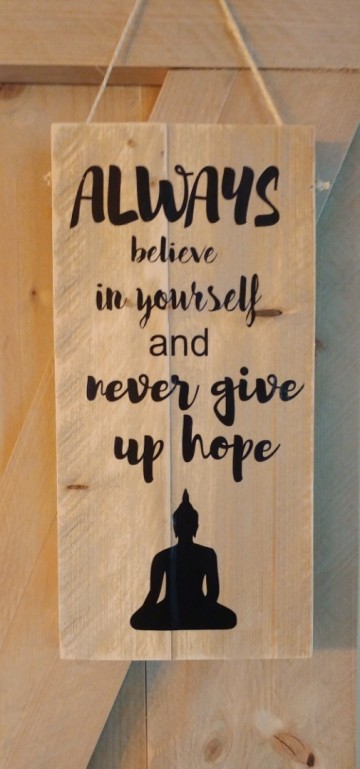 ALWAYS
believe
in yourself
and
never give
up hope